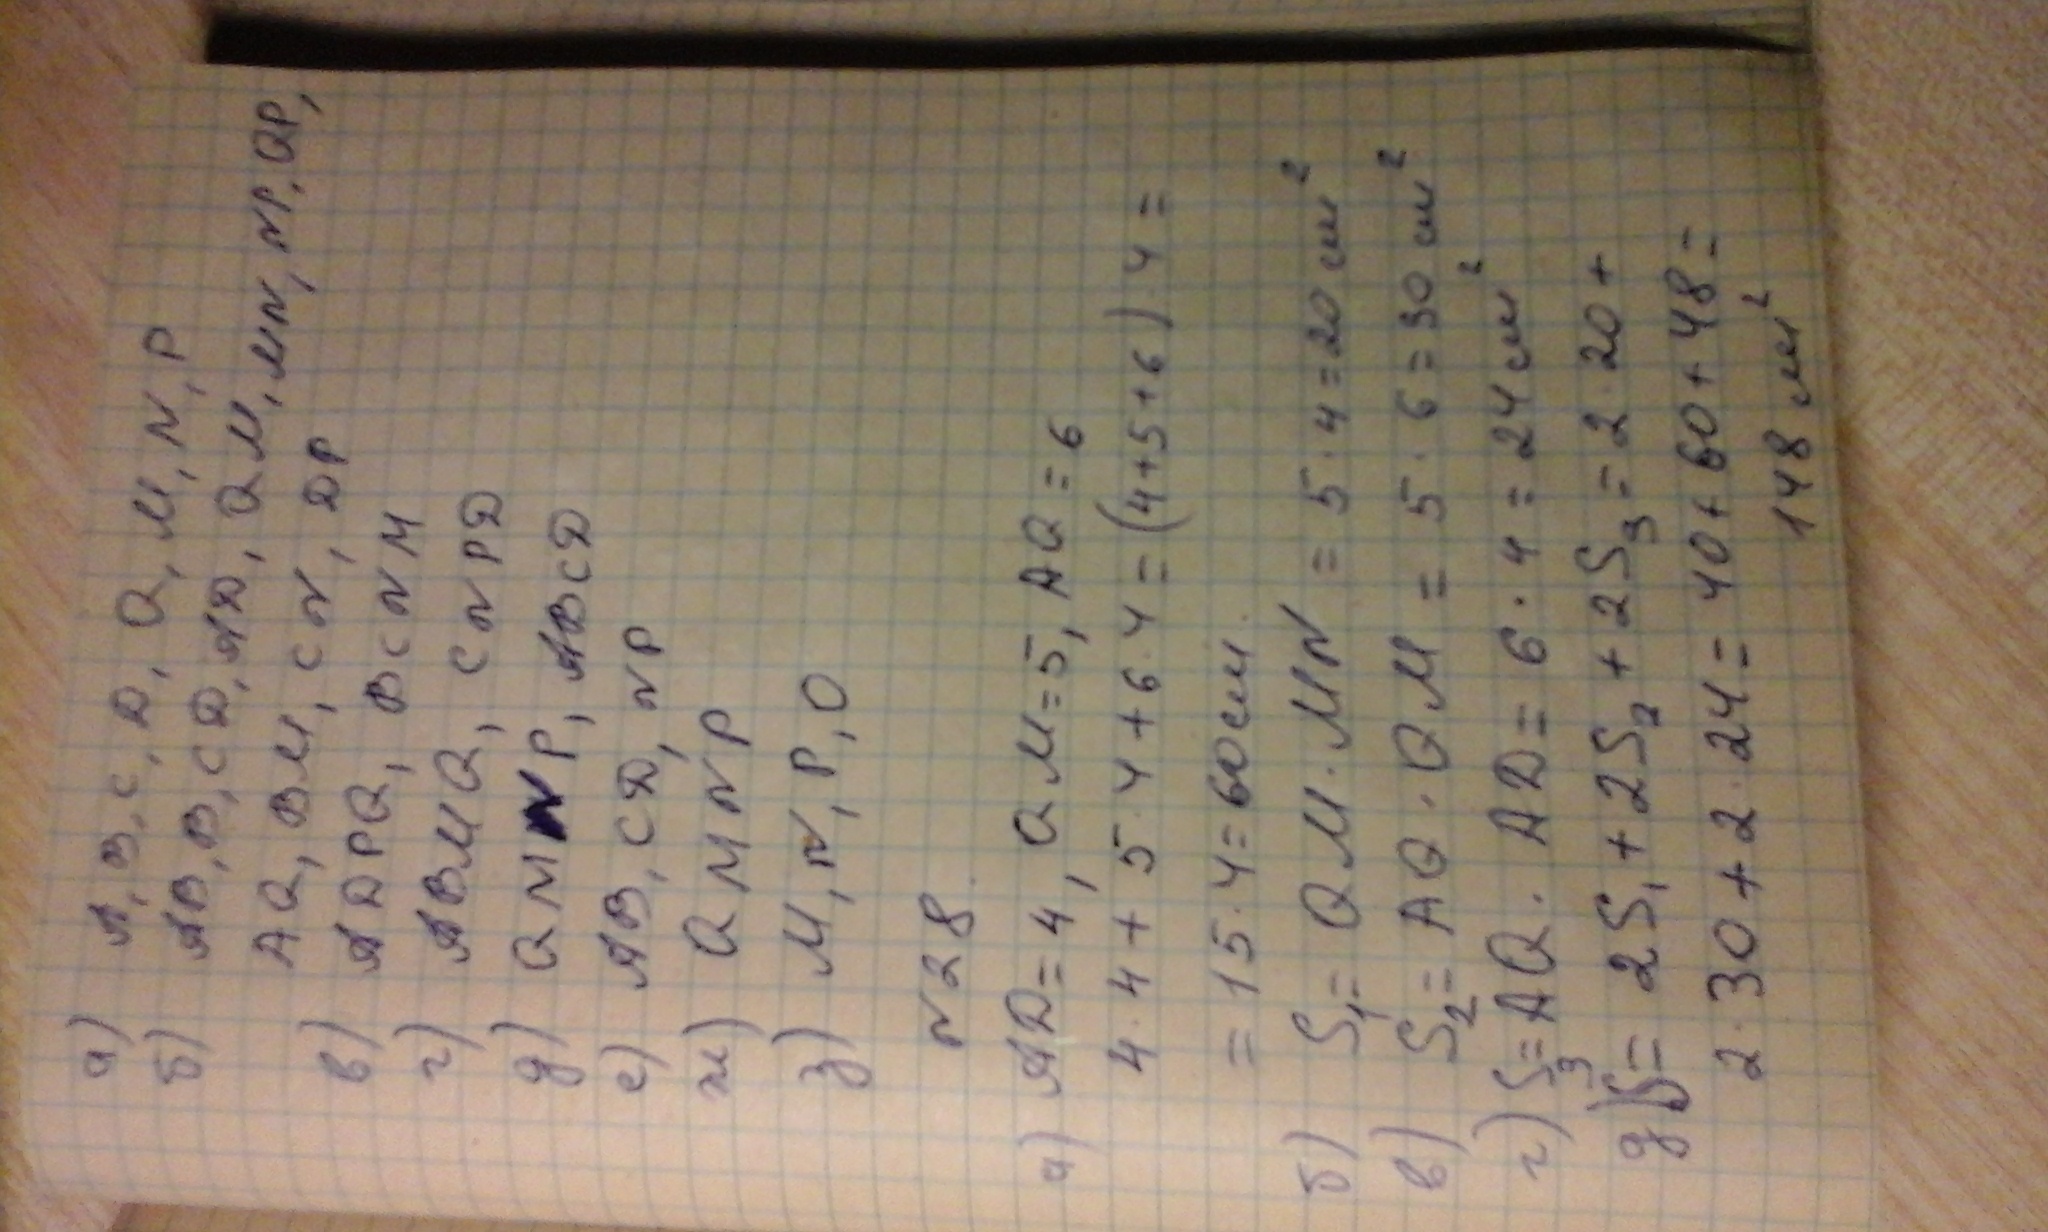 а) A, B, C, D, Q, M, N, P
б) AB, B, CD, AD, QM, MN, NP, QP,
AQ, BM, CN, DP
в) ADPQ, BCNM
г) ABMQ, CNPD
д) QMNP, ABCD
е) AB, CD, NP
ж) QMNP
з) M, N, P, O
N28.
а) AD = 4, QM = 5, AQ = 6
4·4 + 5·4 + 6·4 = (4+5+6)·4 =
= 15·4 = 60 см.
б) S₁ = QM·MN = 5·4 = 20 см²
в) S₂ = AQ·QM = 5·6 = 30 см²
г) S₃ = AQ·AD = 6·4 = 24 см²
д) S = 2S₁ + 2S₂ + 2S₃ = 2·20 +
2·30 + 2·24 = 40 + 60 + 48 =
148 см²